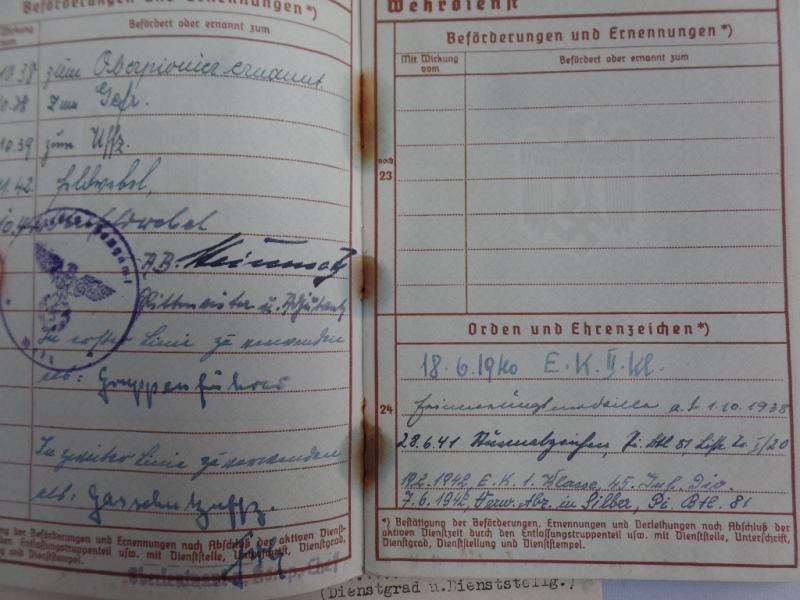 Beförderungen und Ernennungen*)
Wirkung
vom
Befördert oder ernannt zum
10.38 zum Oberpionier ernannt.
10.38 zum Gefr.
10.39 zum Uffz.
1.42. Feldwebel,
feldwebel
A.B.
Rittmeister u. Adjutant
In erster Linie zu verwenden
als: Gruppenführer
In zweiter Linie zu verwenden
als: Gasschutzuffz.
ng der Beförderungen, Ernennungen nach Abschluß der aktiven Dienst-
den Entlassungstruppenteil usw. mit Dienststelle, Unterschrift, Dienstgrad,
stellung und Dienststempel.
Oberleutnant Komp. Chef
Wehrdienst
Beförderungen und Ernennungen*)
Mit Wirkung
vom
Befördert oder ernannt zum
noch
23
Orden und Ehrenzeichen*)
18.6.1940 E.K. II. Kl.
24
Erinnerungsmedaille a.d. 1.10.1938
28.6.41 Sturmabzeichen, Pi. Btl. 81 I/20
19.2.1942, E.K. 1. Klasse, 45. Inf. Div.
7.6.1942, Verw. Abz. in Silber, Pi. Btl. 81
*) Bestätigung der Beförderungen, Ernennungen und Verleihungen nach Abschluß der
aktiven Dienstzeit durch den Entlassungstruppenteil usw. mit Dienststelle, Unterschrift,
Dienstgrad, Dienststellung und Dienststempel.
(Dienstgrad u.Dienststellg.)